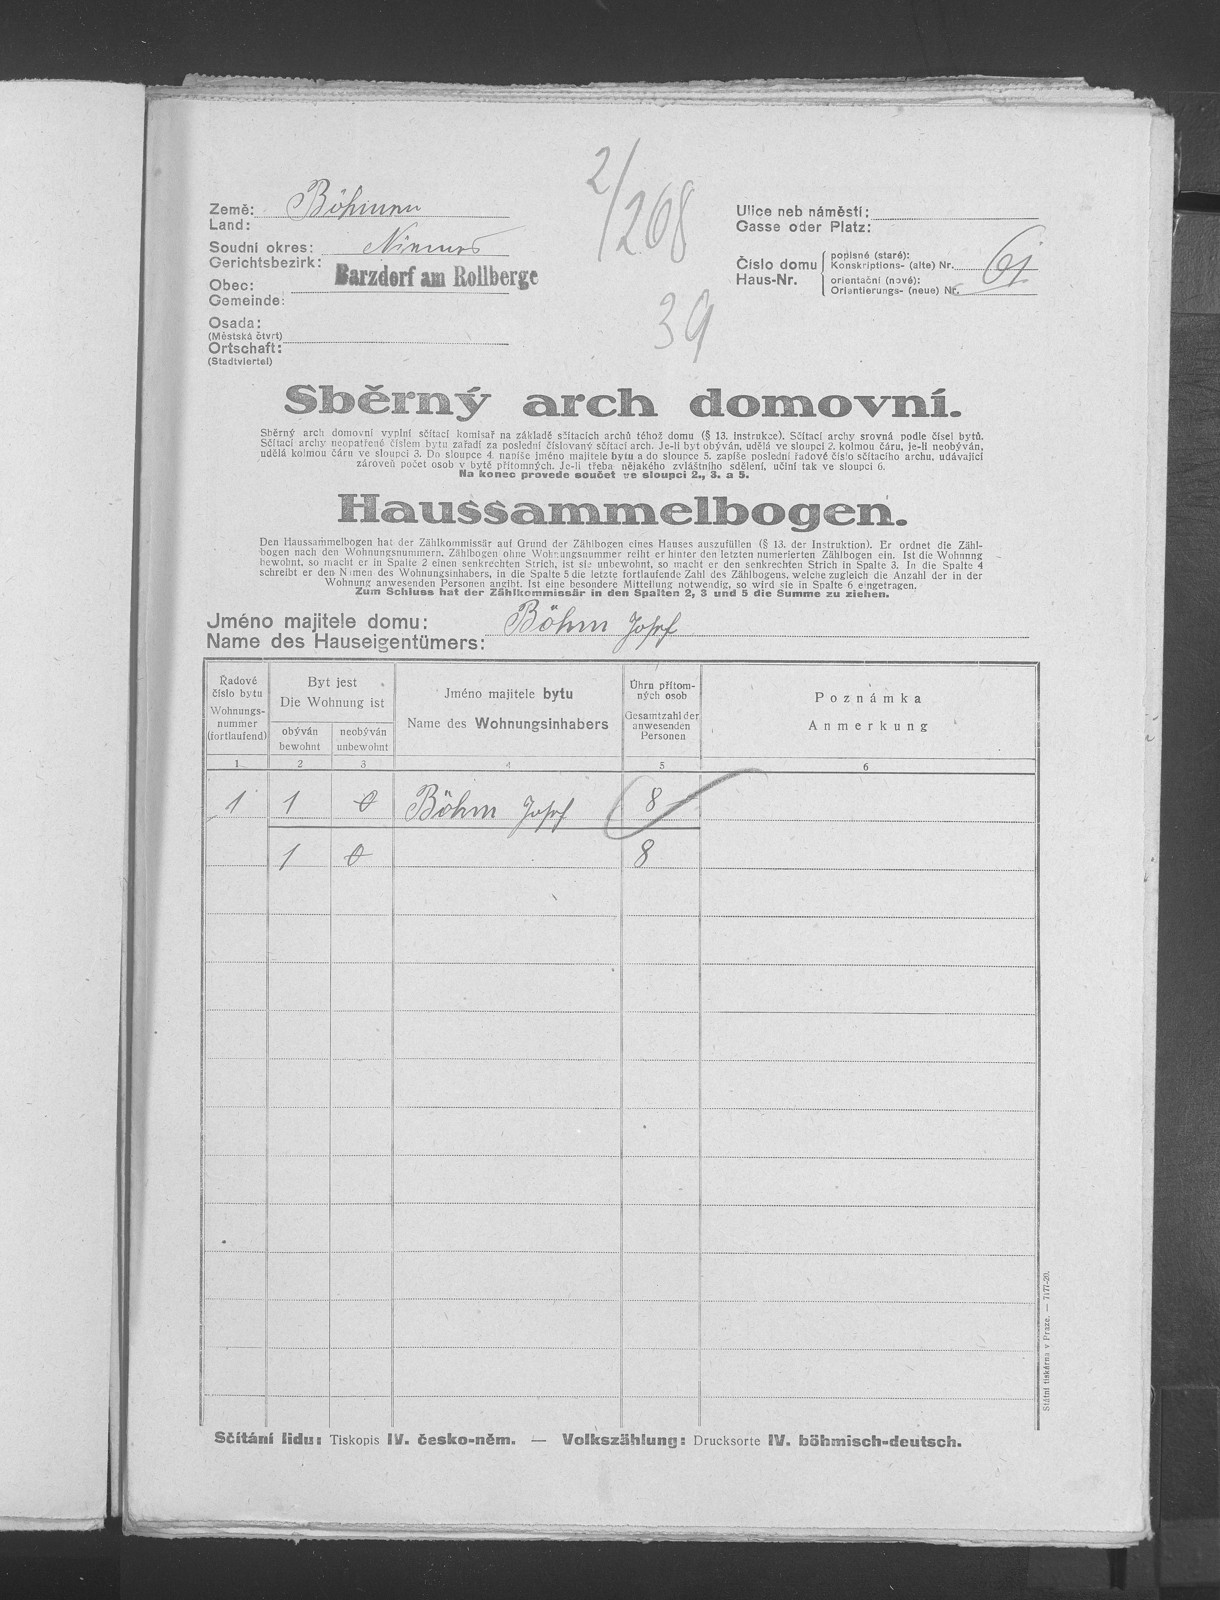 2/268
39
Země: Böhmen
Land:
Soudní okres: Niemes
Gerichtsbezirk:
Obec: Barzdorf am Rollberge
Gemeinde:
Osada:
(Městská čtvrť)
Ortschaft:
(Stadtviertel)
Ulice neb náměstí:
Gasse oder Platz:
Číslo domu
Haus-Nr.
popisné (staré):
Konskriptions- (alte) Nr.
orientační (nové):
Orientierungs- (neue) Nr.
Sběrný arch domovní.
Sběrný arch domovní vyplní sčítací komisař na základě sčítacích archů téhož domu (§ 13. Instrukce). Sčítací archy srovná podle čísel bytů.
Sčítací archy neopatřené číslem bytu zařadí za poslední číslovaný sčítací arch. Je-li byt obýván, udělá ve sloupci 2. kolmou čáru, je-li neobýván,
udělá kolmou čáru ve sloupci 3. Do sloupce 4. napíše jméno majitele bytu a do sloupce 5. zapíše poslední řadové číslo sčítacího archu, udávající
zároveň počet osob v bytě přítomných. Je-li třeba nějakého zvláštního sdělení, učiní tak ve sloupci 6.
Na konec provede součet ve sloupci 2., 3. a 5.
Haussammelbogen.
Den Haussammelbogen hat der Zählkommissär auf Grund der Zählbogen eines Hauses auszufüllen (§ 13. der Instruktion). Er ordnet die Zähl-
bogen nach den Wohnungsnummern. Zählbogen ohne Wohnungsnummer reiht er hinter den letzten numerierten Zählbogen ein. Ist die Wohnung
bewohnt, so macht er in Spalte 2 einen senkrechten Strich, ist sie unbewohnt, so macht er den senkrechten Strich in Spalte 3. In die Spalte 4
schreibt er den Namen des Wohnungsinhabers, in die Spalte 5 die letzte fortlaufende Zahl des Zählbogens, welche zugleich die Anzahl der in der
Wohnung anwesenden Personen angibt. Ist eine besondere Mitteilung notwendig, so wird sie in Spalte 6 eingetragen.
Zum Schluss hat der Zählkommissär in den Spalten 2, 3 und 5 die Summe zu ziehen.
Jméno majitele domu: Böhm Josef
Name des Hauseigentümers:
Řadové
číslo bytu
Wohnungs-
nummer
(fortlaufend)
Byt jest
Die Wohnung ist
obýván
bewohnt
neobýván
unbewohnt
Jméno majitele bytu
Name des Wohnungsinhabers
Úhrn přítom-
ných osob
Gesamtzahl der
anwesenden
Personen
Poznámka
Anmerkung
1 2 3 4 5 6
1 1 0 Böhm Josef 8
1 0 8
Sčítání lidu: Tiskopis IV. česko-něm. — Volkszählung: Drucksorte IV. böhmisch-deutsch.
Státní tiskárna v Praze. — 7177-20.